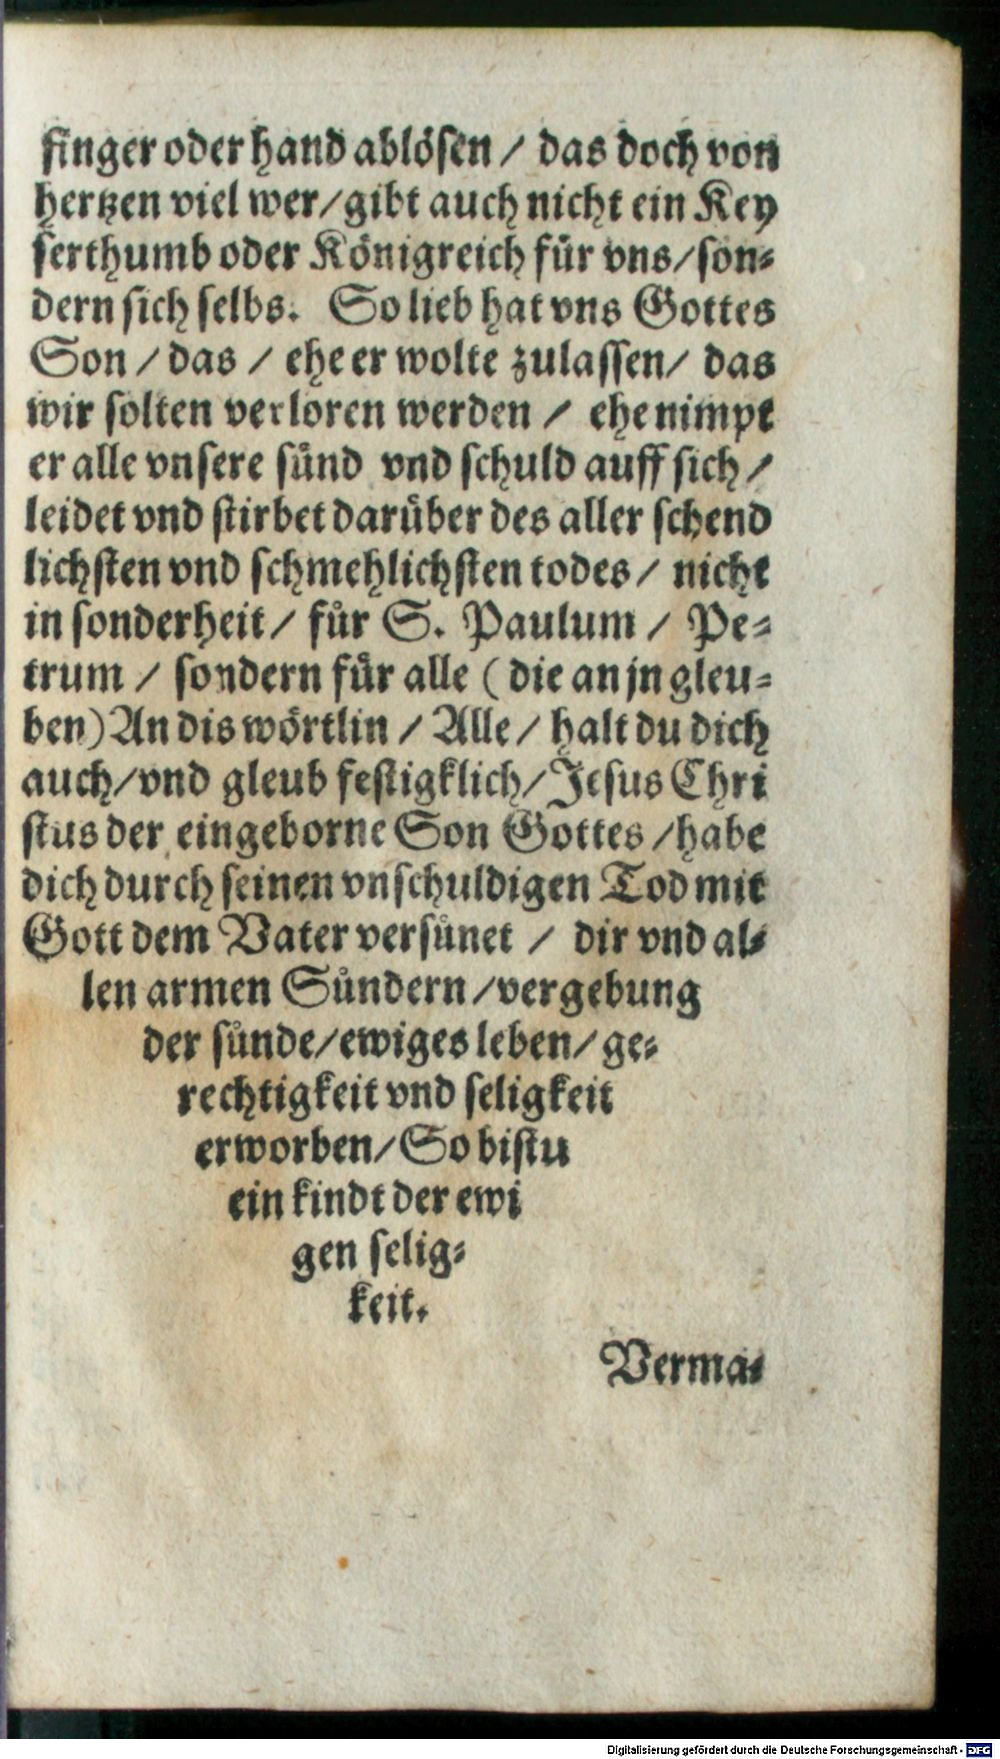 finger oder hand ablösen / das doch von
hertzen viel wer/gibt auch nicht ein Key
serthumb oder Königreich für vns/son-
dern sich selbs. So lieb hat vns Gottes
Son / das / ehe er wolte zulassen/ das
wir solten verloren werden / ehe nimpt
er alle vnsere sünd vnd schuld auff sich /
leidet vnd stirbet darüber des aller schend
lichsten vnd schmehlichsten todes / nicht
in sonderheit / für S. Paulum / Pe-
trum / sondern für alle ( die an jn gleu-
ben) An dis wörtlin / Alle / halt du dich
auch/vnd gleub festigklich/Jesus Chri
stus der eingeborne Son Gottes /habe
dich durch seinen vnschuldigen Tod mit
Gott dem Vater versünet / dir vnd al-
len armen Sündern /vergebung
der sünde/ewiges leben/ ge-
rechtigkeit vnd seligkeit
erworben/So bistu
ein kindt der ewi
gen selig-
keit.
Verma-
Digitalisierung gefördert durch die Deutsche Forschungsgemeinschaft - DFG